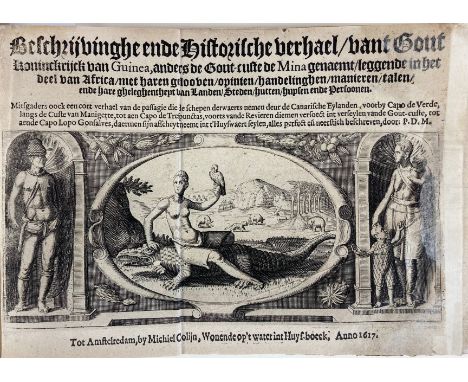 Beschrijvinghe ende Historische verhael/vant Gout
Koninckrijck van Guinea, anders de Gout-custe de Mina genaemt/leggende in het
deel van Africa/met haren gelooven/opinien/handelinghen/manieren/talen/
ende hare ghelegentheyt van Landen/Steden/hutten/huysen ende Persoonen.
Mitsgaders oock een cort verhael van de passagie die Je schepen derwaerts nemen deur de Canarische Eylanden, voorby Capo de Verde,
langs de Custe van Manigette, tot aen Capo de Trespunctas, voorts vande Revieren diemen versoeckt int verseylen vande Gout-custe, tot
aende Capo Lopo Gonsalves, daermen sijn afscheyt neemt int t'Huyswaert seylen, alles perfect eñ neerstich beschreven, door: P. D. M.
Tot Amstelredam, by Michiel Colijn, Wonende op't water int Huys-boeck, Anno 1617.